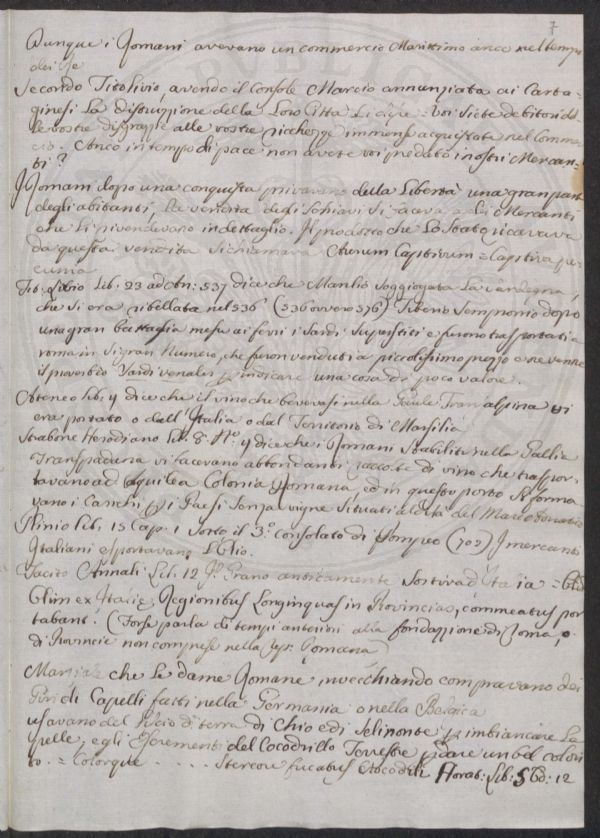 7
Dunque i Romani avevano un commercio Marittimo anco nel tempo
dei Re
Secondo Tito Livio, avendo il Console Marcio annunziata ai Carta-
ginesi La distruzzione della Loro Citta Li disse = Voi siete debitori del
le vostre disgrazie alle vostre richezze immense acquistate nel Commer-
cio. Anco in tempo di pace non avete voi predato i nostri Mercan-
ti?
I Romani dopo una conquista privavano della Libertà una gran parte
degli abitanti, La vendita degli Schiavi si faceva a dei Mercanti
che Li rivendevano in dettaglio. Il prodotto che Lo Stato ricavava
da questa vendita si chiamava Aurum Captivum = Captiva pe-
cunia
Tito Livio Lib. 23 ad An: 537 dice che Manlio soggiogata La Sardegna,
che si era ribellata nel 536 (536 ovvero 576) Tiberio Sempronio dopo
una gran battaglia messe ai ferri i Sardi superstiti e furono trasportati a
roma in si gran Numero, che furon venduti a piccolissimo prezzo e ne venne
il proverbio Sardi venales per indicare una cosa di poco valore.
Ateneo lib. 4 dice che il vino che bevevasi nella Gaule Transalpina vi
era portato o dall'Italia o dal Territorio di Marsilia
Strabone Herodiano Lib. 8. N.o 4 dice che i Romani stabiliti nella Gallia
Transpadana vi facevano abbondanti raccolte di vino che traspor-
tavano ad Aquilea Colonia Romana, ed in questo porto se forma-
vano i Carichi per i Paesi senza vigne situati al di la del Mare
Plinio lib. 15 Cap. 1 sotto il 3.o consolato di Pompeo (702) I mercanti
Italiani esportavano L'Olio.
Tacito Annali Lib. 12 Il Grano anticamente sortiva d'Italia =
Olim ex Italie Regionibus Longinquas in Provincias, commeatus por
tabant. (Forse parla di tempi anteriori alla fondazione di Roma, o
di Provincie non comprese nella Rep. Romana)
Marziale che Le dame Romane, invecchiando compravano dei
Giri di Capelli fatti nella Germania o nella Belgica
usavano del di terra di Chio e di Selinonte per imbiancare La
pelle, e gli Escrementi del Cocodrillo Terrestre per dare un bel colori
to. = Colorque . . . . Stercore fucatus Crocodili Horat: Lib: 5 Od: 12